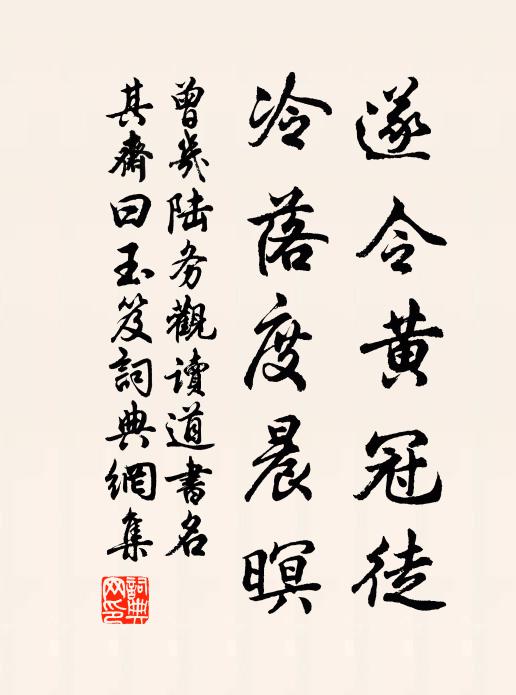 遂令黄冠徒
冷落度晨暝
曾幾陆务觀读道書名
其齋曰玉笈詞典網集
詞典网印